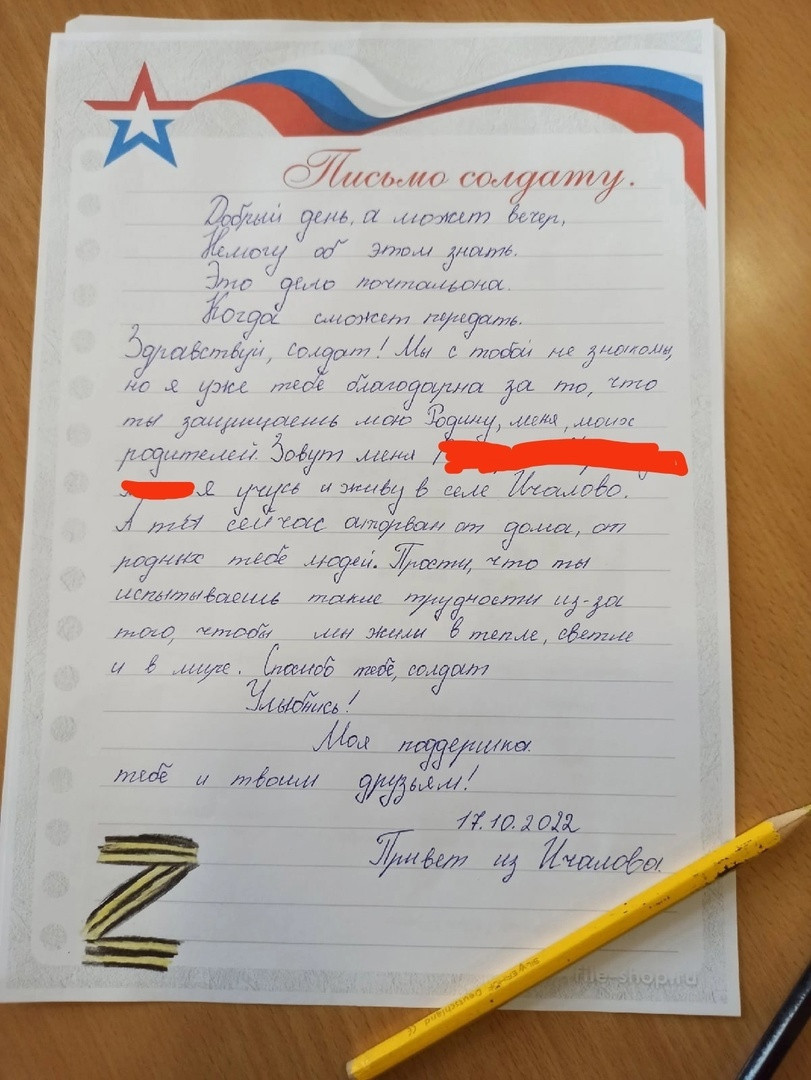 Письмо солдату.
Добрый день, а может вечер,
Немогу об этом знать.
Это дело почтальона.
Когда сможет передать.
Здравствуй, солдат! Мы с тобой не знакомы,
но я уже тебе благодарна за то, что
ты защищаешь мою Родину, меня, моих
родителей. Зовут меня
Я учусь и живу в селе Ичалово.
А ты сейчас оторван от дома, от
родных тебе людей. Прости, что ты
испытываешь такие трудности из-за
того, чтобы мы жили в тепле, светле
и в мире. Спасибо тебе, солдат
Улыбнись!
Моя поддержка
тебе и твоим друзьям!
17.10.2022
Привет из Ичалова.
Z
file-shop.ru